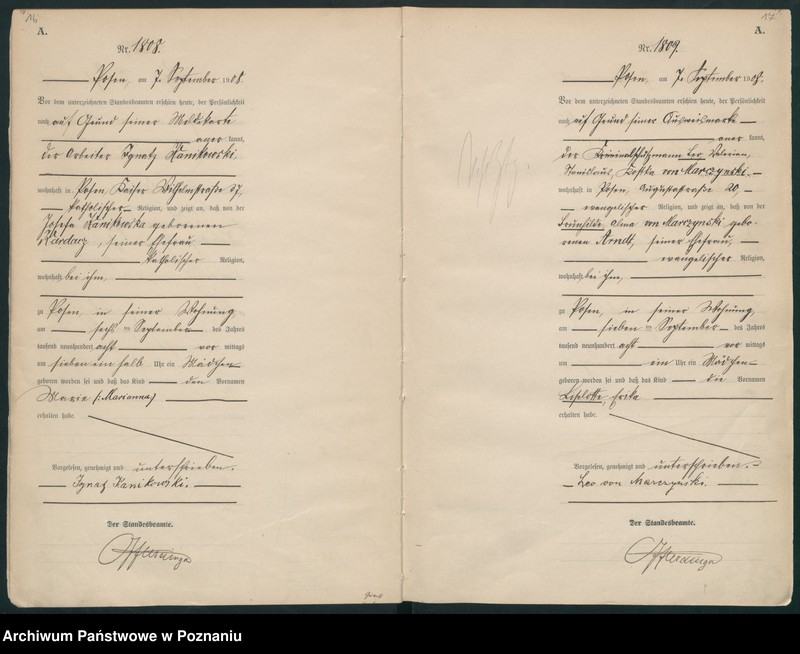 16
A.
Nr. 1808.
Posen, am 7. September 1908.
Vor dem unterzeichneten Standesbeamten erschien heute, der Persönlichkeit
nach auf Grund seiner Meldekarte
aner kannt,
der Arbeiter Ignatz Kanikowski,
wohnhaft in Posen, Kaiser Wilhelmstraße 37,
katholischer Religion, und zeigt an, daß von der
Josefa Kanikowska geborenen
seiner Ehefrau
katholischer Religion,
wohnhaft bei ihm,
zu Posen, in seiner Wohnung
am sechsten September des Jahres
tausend neunhundert acht vor mittags
um sieben ein halb Uhr ein Mädchen
geboren worden sei und daß das Kind den Vornamen
Maria (: Marianna)
erhalten habe.
Vorgelesen, genehmigt und unterschrieben.
Ignatz Kanikowski.
Der Standesbeamte.
17
A.
Nr. 1809.
Posen, am 7. September 1908.
Vor dem unterzeichneten Standesbeamten erschien heute, der Persönlichkeit
nach auf Grund seiner Ausweismarke
aner kannt,
der Kriminalschutzmann Leo Valerian,
Stanislaus, Kostka von Marczynski
wohnhaft in Posen, Augustastraße 20
evangelischer Religion, und zeigt an, daß von der
Brunhilde Alma von Marczynski gebo-
renen Arndt, seiner Ehefrau,
evangelischer Religion,
wohnhaft bei ihm,
zu Posen, in seiner Wohnung
am sieben ten September des Jahres
tausend neunhundert acht vor mittags
um ein Uhr ein Mädchen
geboren worden sei und daß das Kind die Vornamen
Liselotte, Erika
erhalten habe.
Vorgelesen, genehmigt und unterschrieben.
Leo von Marczynski.
Der Standesbeamte.
Archiwum Państwowe w Poznaniu